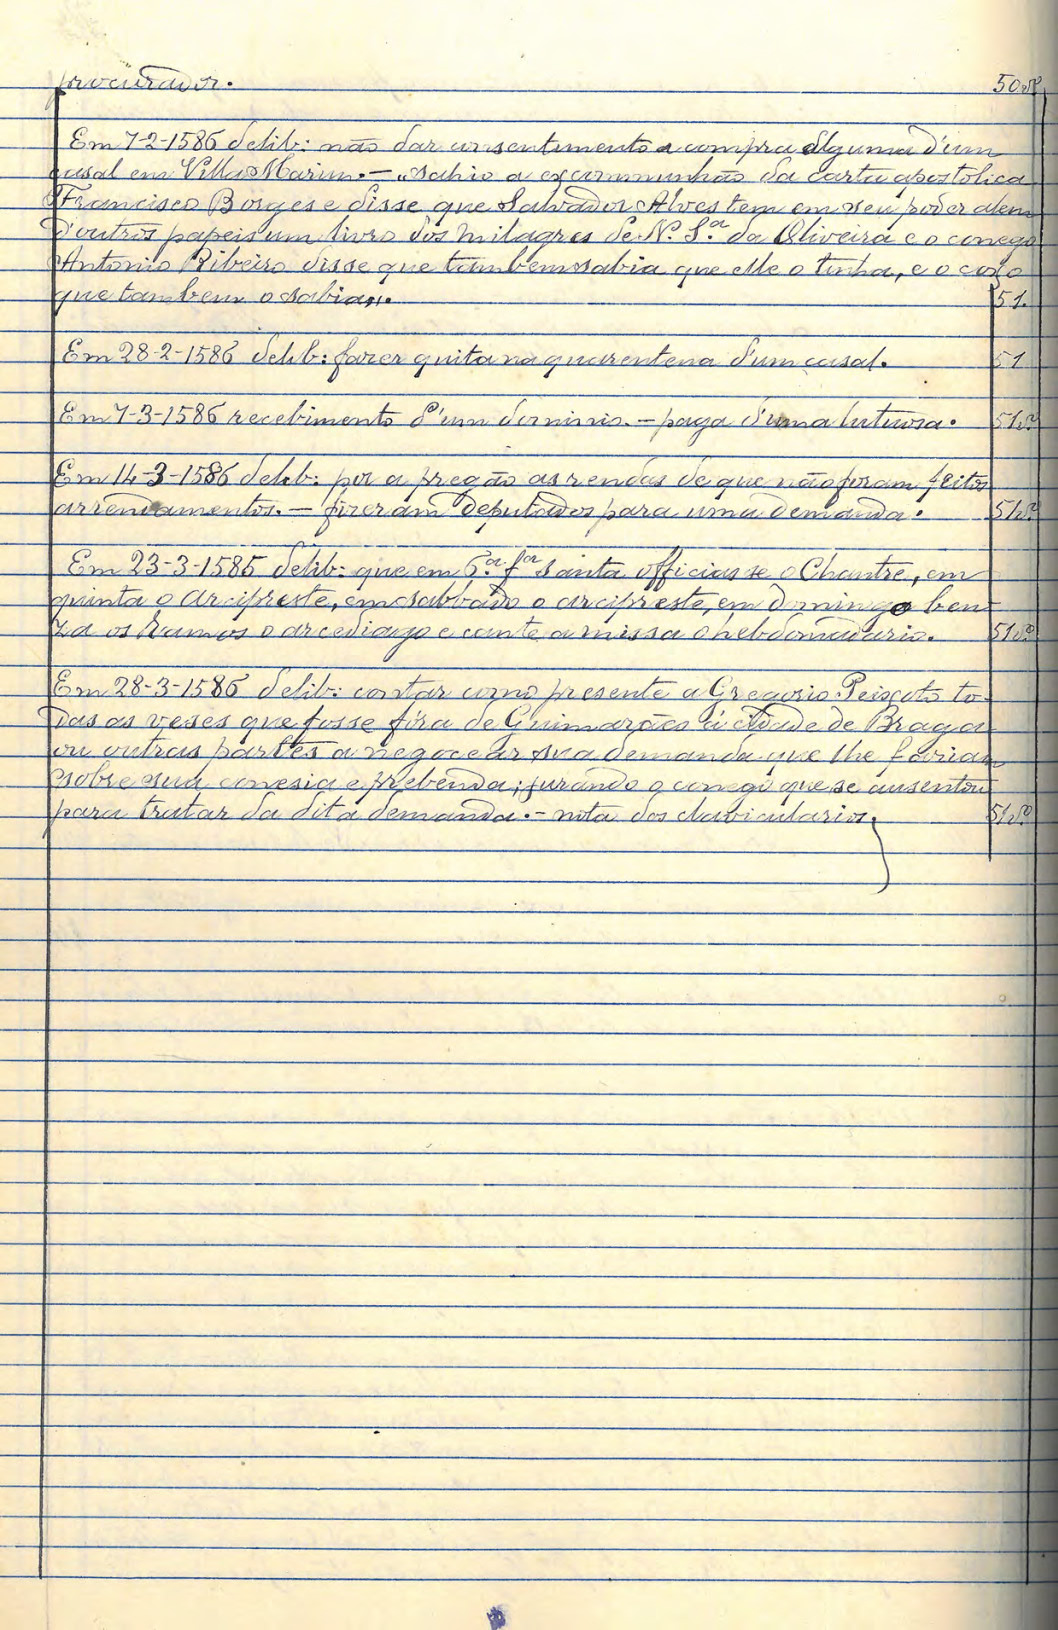 procurador. 50vº
Em 7-2-1586 delib: não dar consentimento a compra alguma d'um
casal em Villa Marim. — "sahio a excommunhão da carta apostolica
Francisco Borges e disse que Salvador Alves tem em seu poder alem
d'outros papeis um livro dos milagres de N. S.ª da Oliveira e o conego
Antonio Ribeiro disse que tambem sabia que elle o tinha, e o
que tambem o sabia". 51.
Em 28-2-1586 delib: fazer quita na quarentena d'um casal. 51
Em 7-3-1586 recebimento d'um dominio. — paga d'uma luctuosa. 51vº
Em 14-3-1586 delib: pôr a pregão as rendas de que não foram feitos
arrendamentos. — fizeram deputados para uma demanda. 51vº
Em 23-3-1585 delib: que em 6.ª fª santa officiasse o Chantre, em
quinta o arcipreste, em sabbado o arcipreste, em domingo ben-
za os Ramos o arcediago e cante a missa o hebdomadario. 51vº
Em 28-3-1586 delib: contar como presente a Gregorio Peixoto to-
das as veses que fosse fóra de Guimarães á cidade de Braga
ou outras partes a negocear sua demanda que lhe faziam
sobre sua conesia e prebenda; jurando o conego que se ausentou
para tratar da dita demanda. — nota dos clavicularios. 51vº